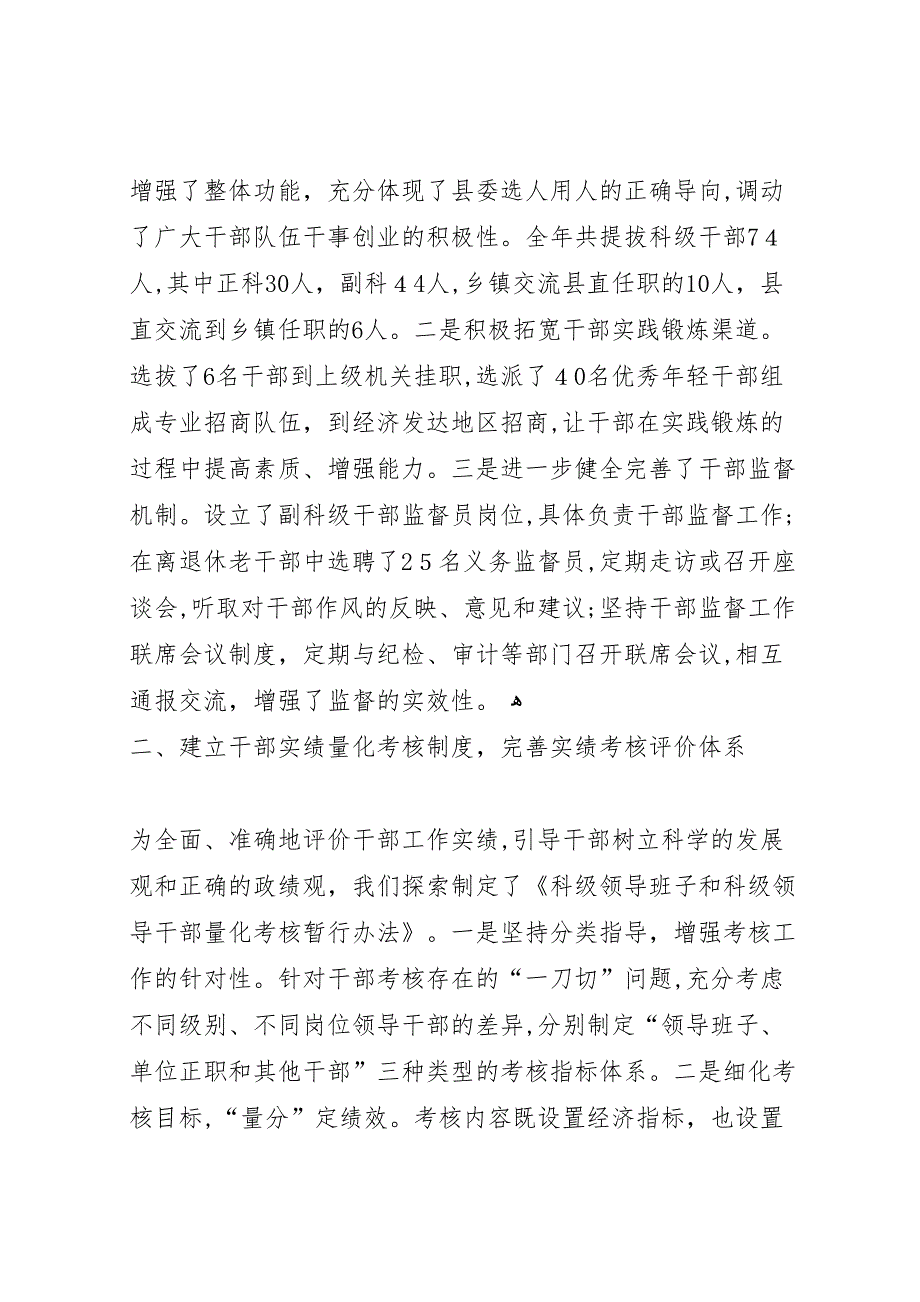 增强了整体功能，充分体现了县委选人用人的正确导向,调动
了广大干部队伍干事创业的积极性。全年共提拔科级干部７４
人,其中正科30人，副科４4人,乡镇交流县直任职的10人，县
直交流到乡镇任职的6人。二是积极拓宽干部实践锻炼渠道。
选拔了6名干部到上级机关挂职,选派了４0名优秀年轻干部组
成专业招商队伍，到经济发达地区招商,让干部在实践锻炼的
过程中提高素质、增强能力。三是进一步健全完善了干部监督
机制。设立了副科级干部监督员岗位,具体负责干部监督工作;
在离退休老干部中选聘了2５名义务监督员,定期走访或召开座
谈会,听取对干部作风的反映、意见和建议;坚持干部监督工作
联席会议制度，定期与纪检、审计等部门召开联席会议,相互
通报交流，增强了监督的实效性。 ﻫ
二、建立干部实绩量化考核制度，完善实绩考核评价体系
为全面、准确地评价干部工作实绩,引导干部树立科学的发展
观和正确的政绩观，我们探索制定了《科级领导班子和科级领
导干部量化考核暂行办法》。一是坚持分类指导，增强考核工
作的针对性。针对干部考核存在的“一刀切”问题,充分考虑
不同级别、不同岗位领导干部的差异,分别制定“领导班子、
单位正职和其他干部”三种类型的考核指标体系。二是细化考
核目标,“量分”定绩效。考核内容既设置经济指标，也设置